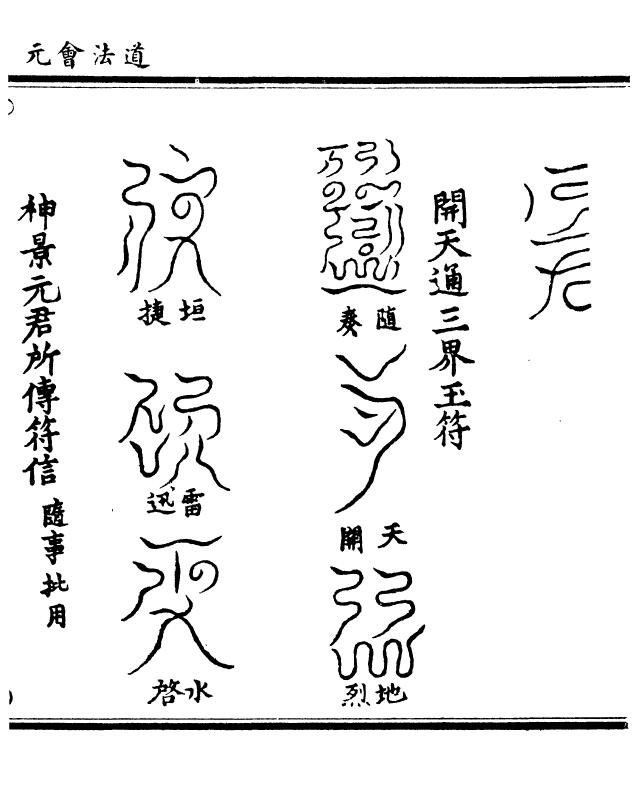 道法會元
開天通三界玉符
随奏
天開
地烈
垣捷
雷迅
水啓
神景元君所傳符信
隨事批用